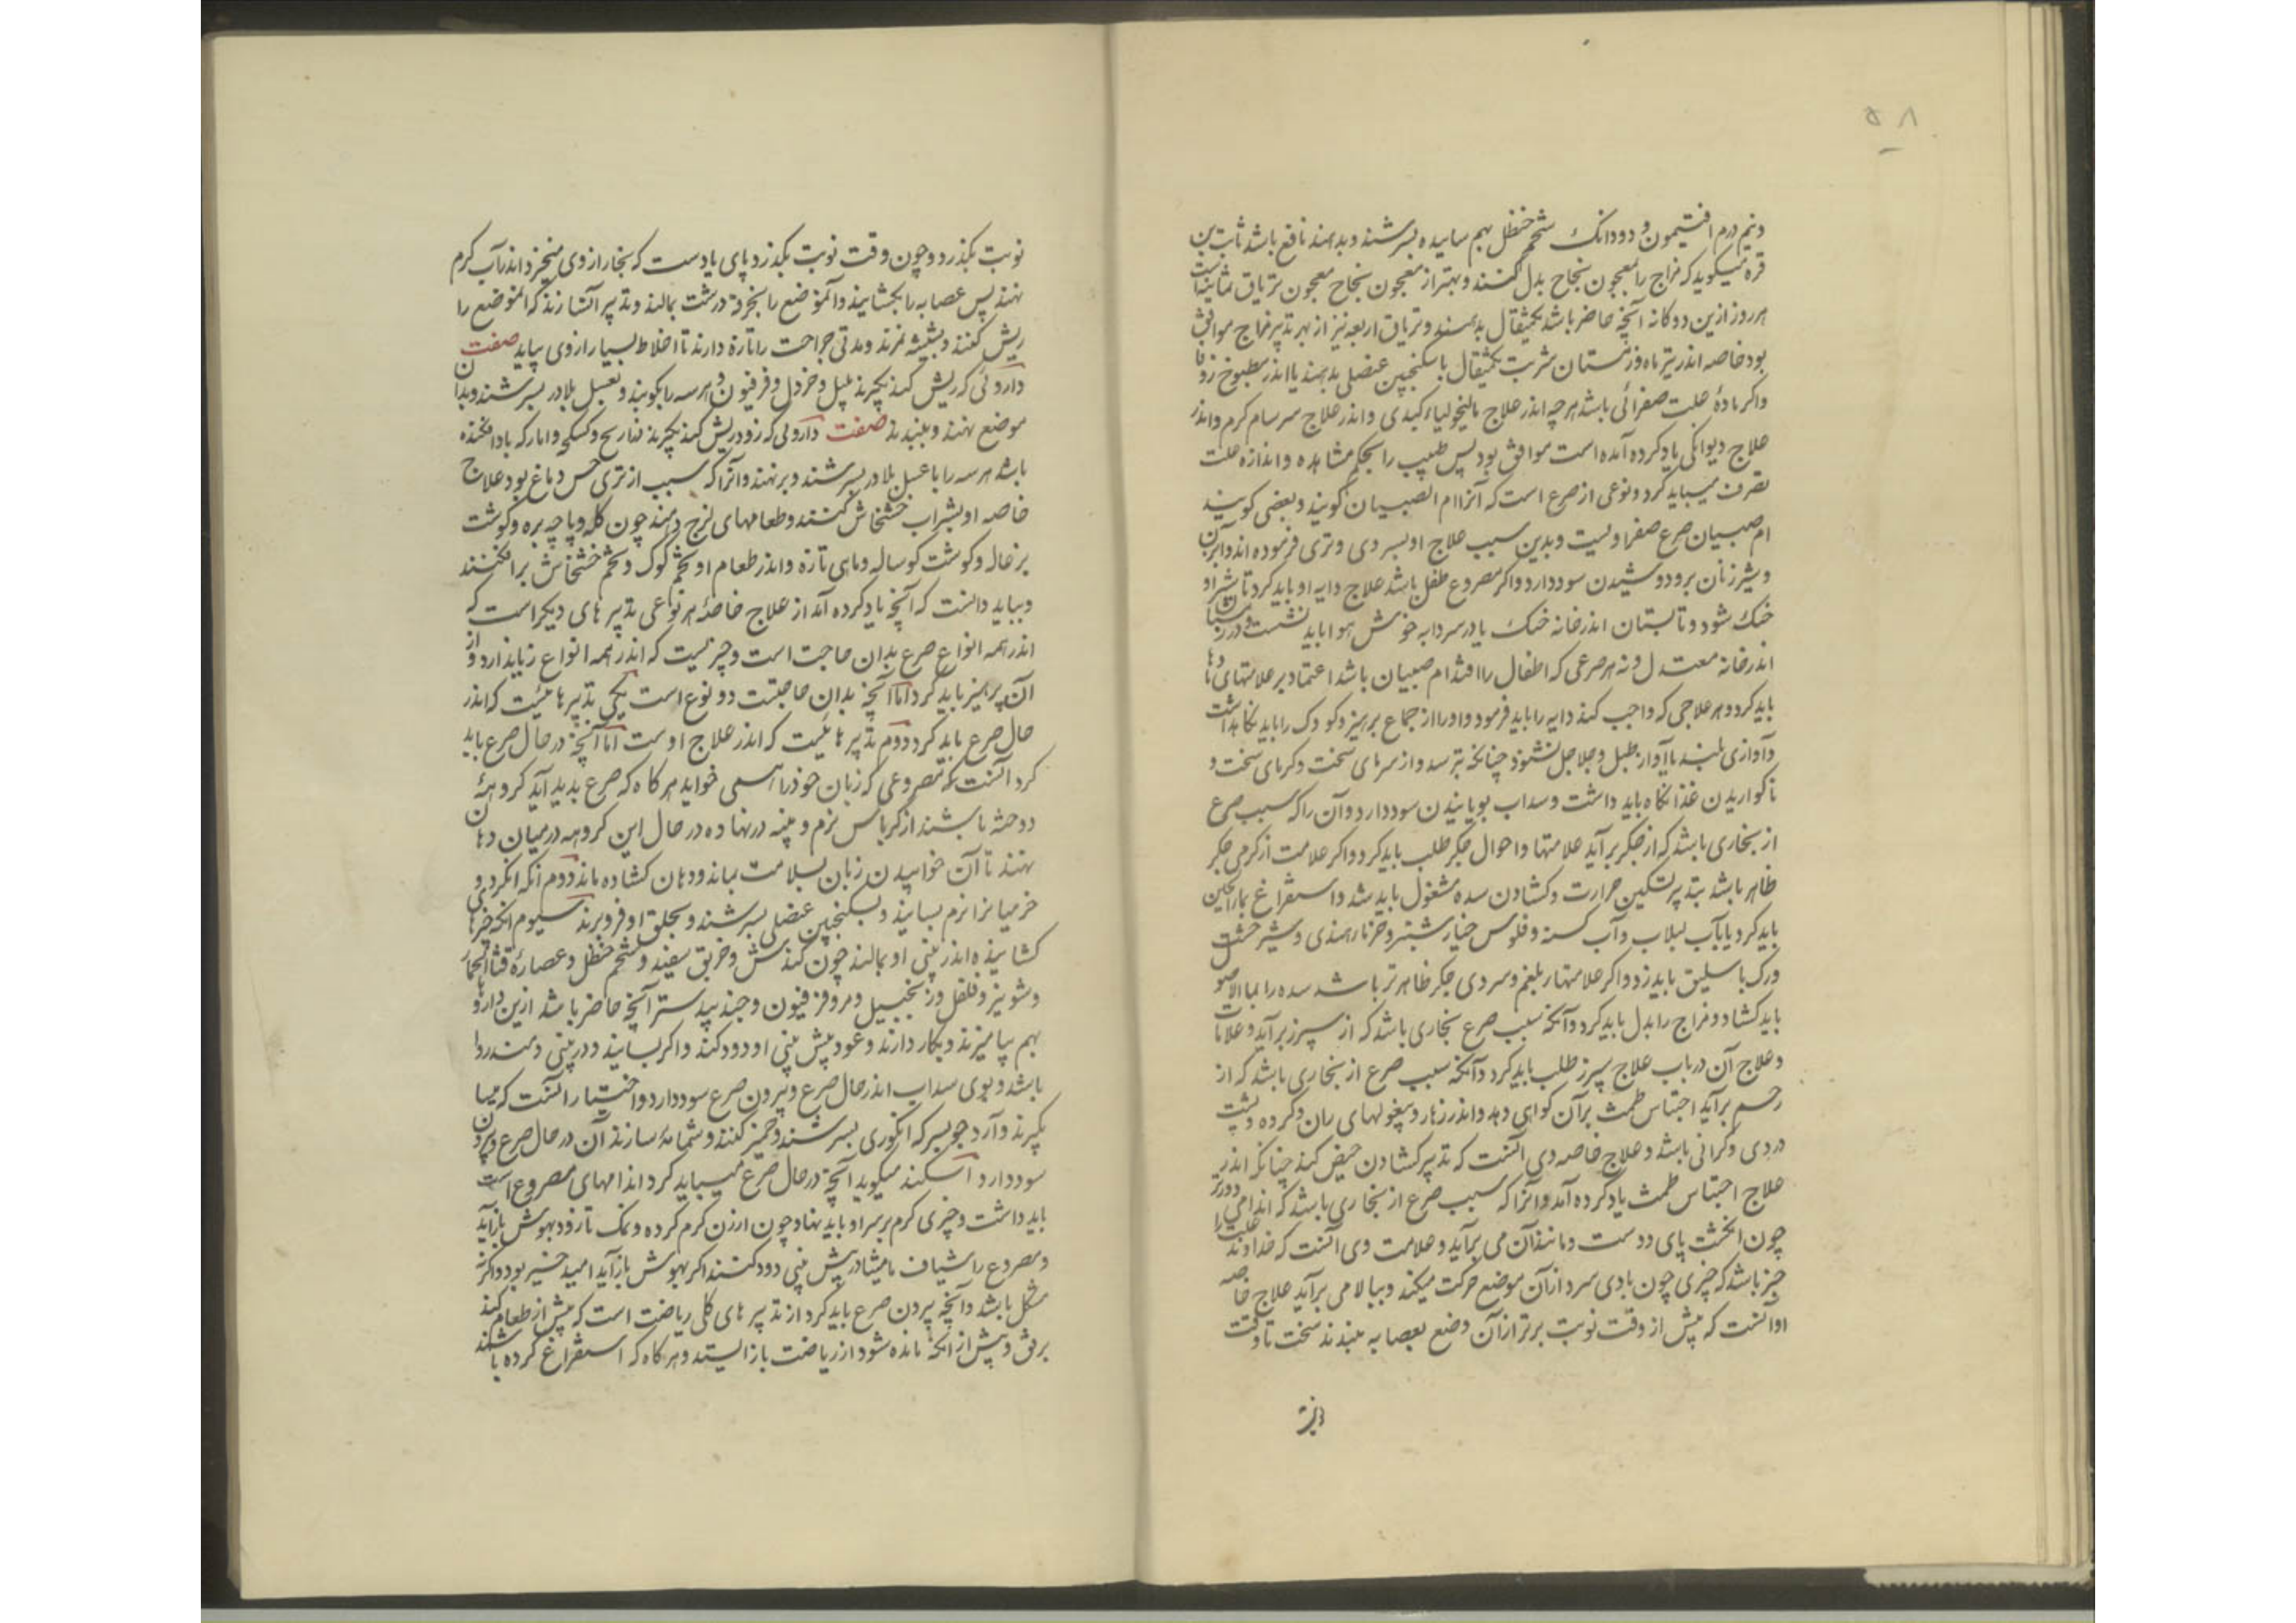 ۵۸
ونیم درم افتیمون و دودانک شحم حنظل بهم ساییده بسرشند و بدهند نافع باشد ثابت بن
قره میکوید که مزاج را بمعجون نجاح بدل کنند و بهتر از معجون نجاح معجون تریاق ثمانیه است
هر روز ازین دوکانه آنچه حاضر باشد یکمثقال بدهند و تریاق اربعه نیز از بهر تدبیر مزاج موافق
بود خاصه اندر تیر ماه و زمستان شربت یکمثقال باسکنجبین عنصلی بدهند یا اندر مطبوخ زوفا
واکر مادهٔ علت صفرائی باشد هرچه اندر علاج مالیخولیاء کبدی واندر علاج سرسام کرم واندر
علاج دیوانکی یاد کرده آمده است موافق بود پس طبیب را بحکم مشاهده و اندازه علت
تصرف میباید کرد و نوعی از صرع است که آنرا ام الصبیان کویند و بعضی کویند
ام صبیان صرع صفراویست و بدین سبب علاج او بسردی و تری فرموده اند و ابزن
و شیر زنان برو دوشیدن سود دارد و اکر مصروع طفل باشد علاج دایه او باید کرد تا شیر او
خنک شود و تابستان اندر خانه خنک یا در سردابه خوش هوا باید نشست و در زمستان
اندر خانه معتدل و نه هر صرعی که اطفال را افتد ام صبیان باشد اعتماد بر علامتهای
باید کرد و هر علاجی که واجب کند دایه را باید فرمود و او را از جماع پرهیز و کودک را باید نکاهداشت
تا آوازی بلند یا آواز طبل و جلاجل نشنود چنانکه بترسد و از سرمای سخت و کرمای سخت و
ناکواریدن غذا نکاه باید داشت و سداب بویانیدن سود دارد و آن را که سبب صرع
از بخاری باشد که از جکر برآید علامتها و احوال جکر طلب باید کرد و اکر علامت از کرمی جکر
ظاهر باشد بتدبیر تسکین حرارت و کشادن سده مشغول باید شد و استفراغ بماء الجبن
باید کرد یا بآب لبلاب و آب کسنه و فلوس خیارشنبر و خرماء هندی و شیر خشت
ورک باسلیق باید زد و اکر علامتهاء بلغم و سردی جکر ظاهرتر باشد سده را بماء الاصول
باید کشاد و مزاج را بدل باید کرد و آنکه سبب صرع بخاری باشد که از سپرز برآید و علامات
و علاج آن در باب علاج سپرز طلب باید کرد و آنکه سبب صرع از بخاری باشد که از
رحم برآید احتباس طمث بر آن کواهی دهد و اندر زهار و پیغولهای ران و کرده و پشت
دردی و کرانی باشد و علاج خاصه وی آنست که تدبیر کشادن حیض کند چنانکه اندر
علاج احتباس طمث یاد کرده آمد و آنرا که سبب صرع از بخاری باشد که اندامی دورتر
چون انکشت پای و دست و مانند آن می برآید و علامت وی آنست که خداوند علت را
خبر باشد که چیزی چون بادی سرد از آن موضع حرکت میکند و ببالا می برآید علاج خاصه
او آنست که پیش از وقت نوبت برتر از آن وضع بعصابه ببندند سخت تا وقت
نوبت بکذرد و چون وقت نوبت بکذرد پای یا دست که بخار از وی میخیزد اندر آب کرم
نهند پس عصابه را بکشایند و آنموضع را بخرقه درشت بمالند و تدبیر آنسازند که آنموضع را
ریش کنند و بشیشه نمزند و مدتی جراحت را تازه دارند تا اخلاط بسیار از وی بپاید صفت
داروئی که ریش کند بکیرند پلپل و خردل و فرفیون و هر سه را بکوبند و بعسل بلادر بسرشند و بدان
موضع نهند و ببندند صفت داروئی که زود ریش کند بکیرند ذراریح و کبیکج و
باشد هر سه را با عسل بلادر بسرشند و برنهند و آنرا که سبب از تری حس دماغ بود علاج
خاصه او بشراب خشخاش کنند و طعامهای لزج دهند چون کله و پاچه بره و کوشت
بزغاله و کوشت کوساله و ماهی تازه و اندر طعام او تخم کوک و تخم خشخاش برافکنند
و بباید دانست که آنچه یاد کرده آمد از علاج خاصهٔ هر نوعی تدبیرهای دیکر است که
اندر همه انواع صرع بدان حاجت است و چیزیست که اندر همه انواع زیاندارد و از
آن پرهیز باید کرد اما آنچه بدان حاجتست دو نوع است یکی تدبیرهائیست که اندر
حال صرع باید کرد دوم تدبیرهائیست که اندر علاج اوست اما آنچه در حال صرع باید
کرد آنست که مصروعی که زبان خود را همی خواید هر کاه که صرع پدید آید کروههٔ
دوخته باشند از کرباس نرم و پنبه درنهاده در حال این کروهه در میان دهان
نهند تا آن خواییدن زبان بسلامت بماند و دهان کشاده ماند دوم آنکه انکرد و
خرمیانرا نرم بسایند و بسکنجبین عنصلی بسرشند و بحلق او فروبرند سیوم آنکه چیزها
کشاینده اندر بینی او بمالند چون کندش و خربق سفید و شحم حنظل و عصارهٔ قثاءالحمار
و شونیز و فلفل و زنجبیل و فرفیون و جندبیدستر آنچه حاضر باشد ازین داروها
بهم بیامیزند و بکار دارند و عود پیش بینی او دود کند و اکر بسایند و در بینی دمند روا
باشد و بوی سداب اندر حال صرع و بیرون صرع سود دارد و اختیار آنست که
بکیرند و آرد جو بسرکه انکوری بسرشند و خمیر کنند و شمامه سازند آن در حال صرع و بیرون
سود دارد اسکند میکوید آنچه در حال صرع میباید کرد اندامهای مصروع راست
باید داشت و چیزی کرم بر سر او باید نهاد چون ارزن کرم کرده و نمک تا زود بهوش بازآید
و مصروع را شیاف مامیثا در پیش بینی دود کنند اکر بهوش بازآید امید خیر بود و اکر نه
مشکل باشد و آنچه بیرون صرع باید کرد از تدبیرهای کلی ریاضت است که پیش از طعام کند
برفق و پیش از آنکه مانده شود از ریاضت باز ایستد و هر کاه که استفراغ کرده باشند